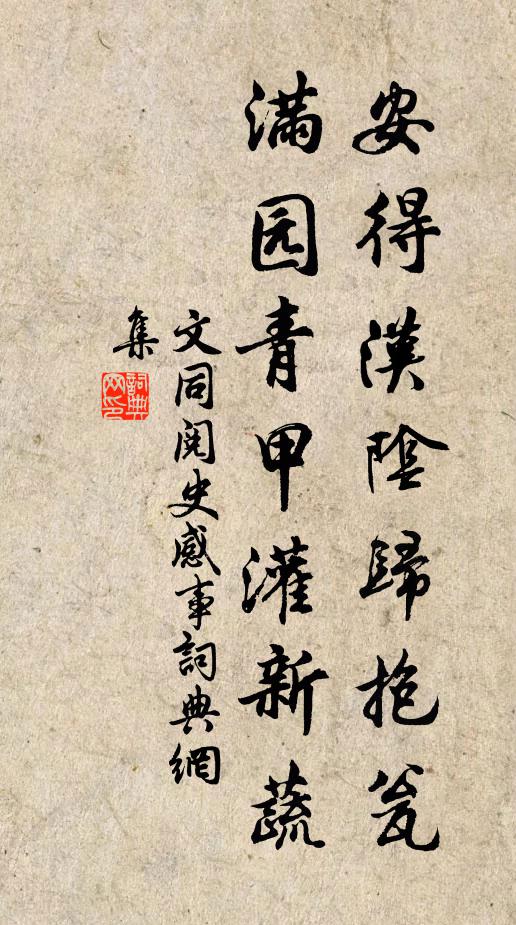 安得漢陰歸抱瓮
满园青甲灌新蔬
文同阅史感事詞典網
集
詞典
网印